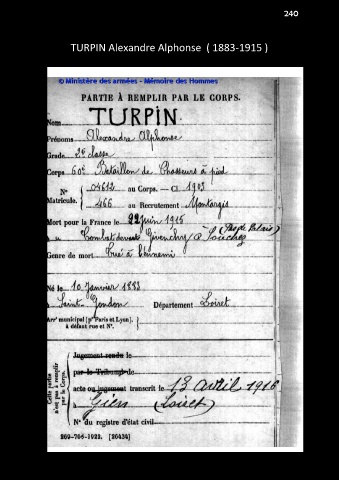 240
TURPIN Alexandre Alphonse ( 1883-1915 )
© Ministère des armées - Mémoire des Hommes
PARTIE À REMPLIR PAR LE CORPS.
Nom TURPIN
Prénoms Alexandre Alphonse
Grade 2e classe
Corps 60e Bataillon de Chasseurs à pied
N° 04612 au Corps. — Cl. 1903
Matricule. 466 au Recrutement Montargis
Mort pour la France le 22 juin 1915
à Combat devant Givenchy à Souchez (Pas de Calais)
Genre de mort Tué à l'ennemi
Né le 10 Janvier 1883
à Saint-Gondon Département Loiret
Arrt municipal (pr Paris et Lyon),
à défaut rue et N°.
Cette partie
n'est pas à remplir
par le Corps.
Jugement rendu le
par le Tribunal de
acte ou jugement transcrit le 13 avril 1916
à Gien (Loiret)
N° du registre d'état civil
269-708-1922. [26434]